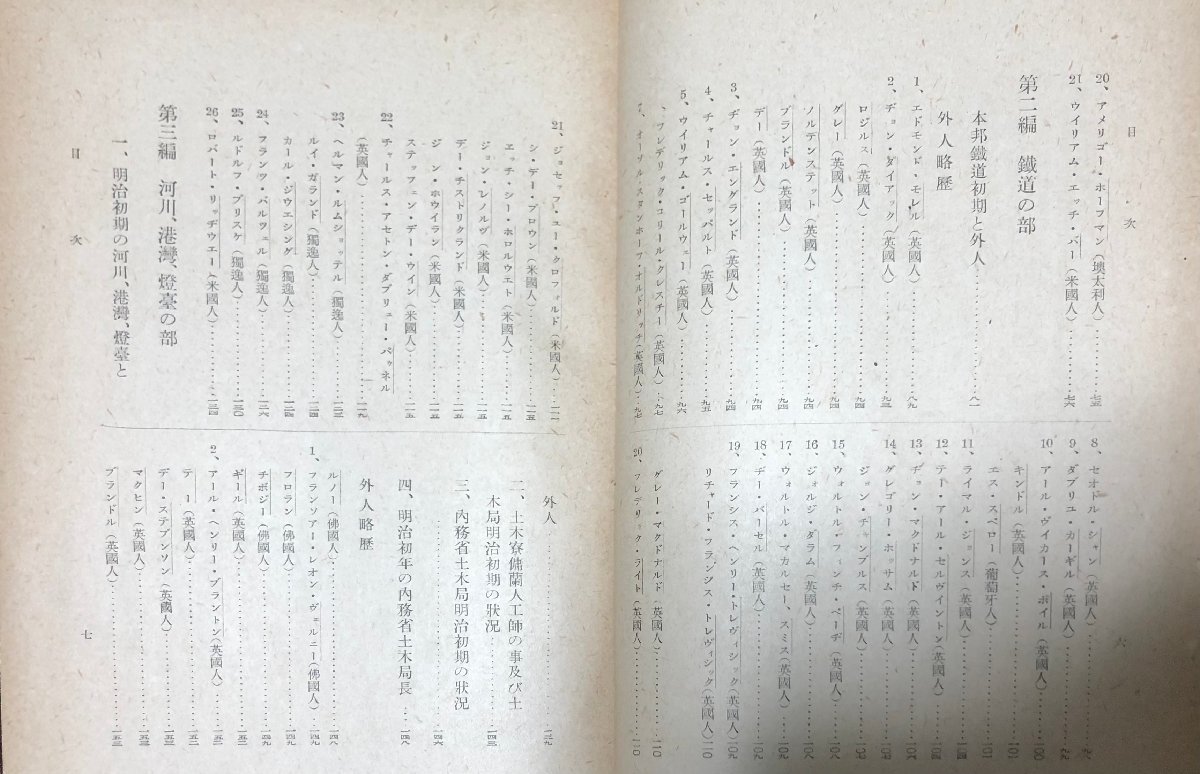 目次
20、アメリゴー・ホーフマン(墺太利人)……七五
21、ウイリアム・エッチ・バー(米國人)……七六
第二編 鐵道の部
本邦鐵道初期と外人……八一
外人略歷
1、エドモンド・モレル(英國人)……八九
2、ヂョン・ダイアック(英國人)……九三
ロジルス(英國人)……九四
グレー(英國人)……九四
ノルデンステット(英國人)……九四
ブランドル(英國人)……九四
デー(英國人)……九四
3、ヂョン・エングランド(英國人)……九四
4、チャールス・セッパルト(英國人)……九五
5、ウイリアム・ゴールウェー(英國人)……九六
、フレデリック・コリール・クレスチー(英國人)……九七
7、オーサル・スタンホーフ・オルドリッチ(英國人)……九七
8、セオドル・シャン(英國人)……九八
9、ダブリユ・カーギル(英國人)……九九
10、アール・ヴィカース・ボイル(英國人)……100
キンドル(英國人)……101
エス・スペロー(葡萄牙人)……101
11、ライマル・ジョンス(英國人)……10四
12、テー・アール・セルヴィントン(英國人)……10四
13、ヂョン・マクドナルド(英國人)……10五
14、グレゴリー・ホッサム(英國人)……10六
ジョン・チャンブルス(英國人)……10七
15、ウォルトル・フィンチ・ページ(英國人)……10七
16、ジォルジ・ダラム(英國人)……10七
17、ウォルトル・マカルセー、スミス(英國人)……10八
18、ヂー・パーセル(英國人)……10八
19、フランシス・ヘンリー・トレヴィシック(英國人)……10九
リチャード・フランシス・トレヴィシック(英國人)……110
グレー・マクドナルド(英國人)……110
20、フレデリック・ライト(英國人)……110
六
21、ジョセッフ・ユー・クロフィルド(米國人)……一一四
シ・デー・ブロウン(米國人)……一一五
エッチ・シー・ホロルウエト(米國人)……一一五
ジョン・レノルヴ(米國人)……一一五
デー・チストリクランド(米國人)……一一五
ジン・ホウイラン(米國人)……一一五
ステッフェン・デー・ウイン(米國人)……一一五
22、チャールス・アセトン・ダブリュー・パゥネル
(英國人)……一一九
23、ヘルマン・ルムショッテル(獨逸人)……一二三
ルイ・ガランド(獨逸人)……一二四
カールジウエシング(獨逸人)……一二四
24、フランツ・バルツェル(獨逸人)……一二六
25、ルドルフ・ブリスケ(獨逸人)……一三〇
26、ロバート・リッヂウエー(米國人)……一三四
第三編 河川、港灣、燈臺の部
一、明治初期の河川、港灣、燈臺と
外人……一三九
二、土木寮傭蘭人工師の事及び土
木局明治初期の狀況……一四三
三、內務省土木局明治初期の狀況
……一四六
四、明治初年の內務省土木局長……一四八
外人略歷
ルノー(佛國人)……一四八
1、フランソアー・レオン・ヴェルニー(佛國人)……一四九
フロラン(佛國人)……一四九
チボジー(佛國人)……一四九
ギール(英國人)……一五二
2、アール・ヘンリー・ブラントン(英國人)……一五二
テー(英國人)……一五二
デー・ステブンソン(英國人)……一五三
マクヒン(英國人)……一五三
ブランドル(英國人)……一五三
目次
七